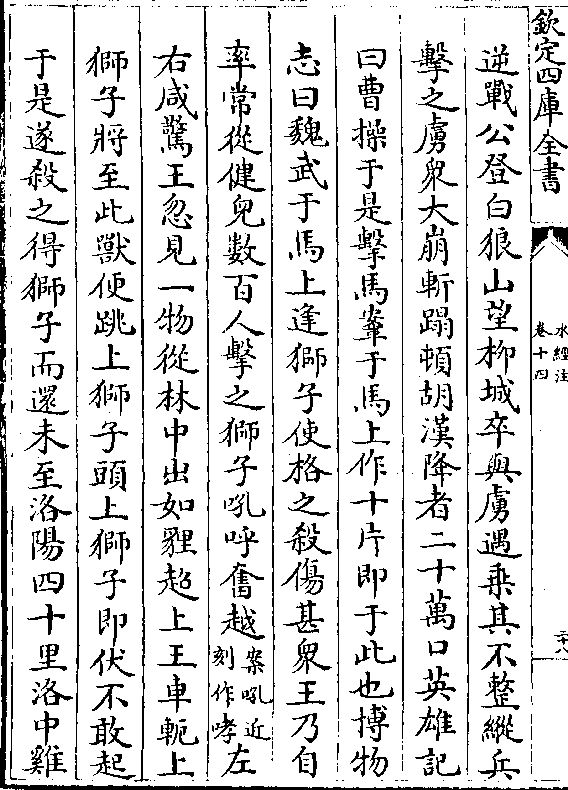 欽定四庫全書
水經注
卷十四
三十八
逆戰公登白狼山望柳城卒與虜遇乗其不整縱兵
擊之虜衆大崩斬蹋頓胡漢降者二十萬口英雄記
曰曹操于是擊馬鞌于馬上作十片即于此也博物
志曰魏武于馬上逢獅子使格之殺傷甚衆王乃自
率常從健兒數百人擊之獅子吼呼奮越案吼近刻作哮左
右咸驚王忽見一物從林中出如貍超上王車軛上
獅子將至此獸便跳上獅子頭上獅子即伏不敢起
于是遂殺之得獅子而還未至洛陽四十里洛中雞